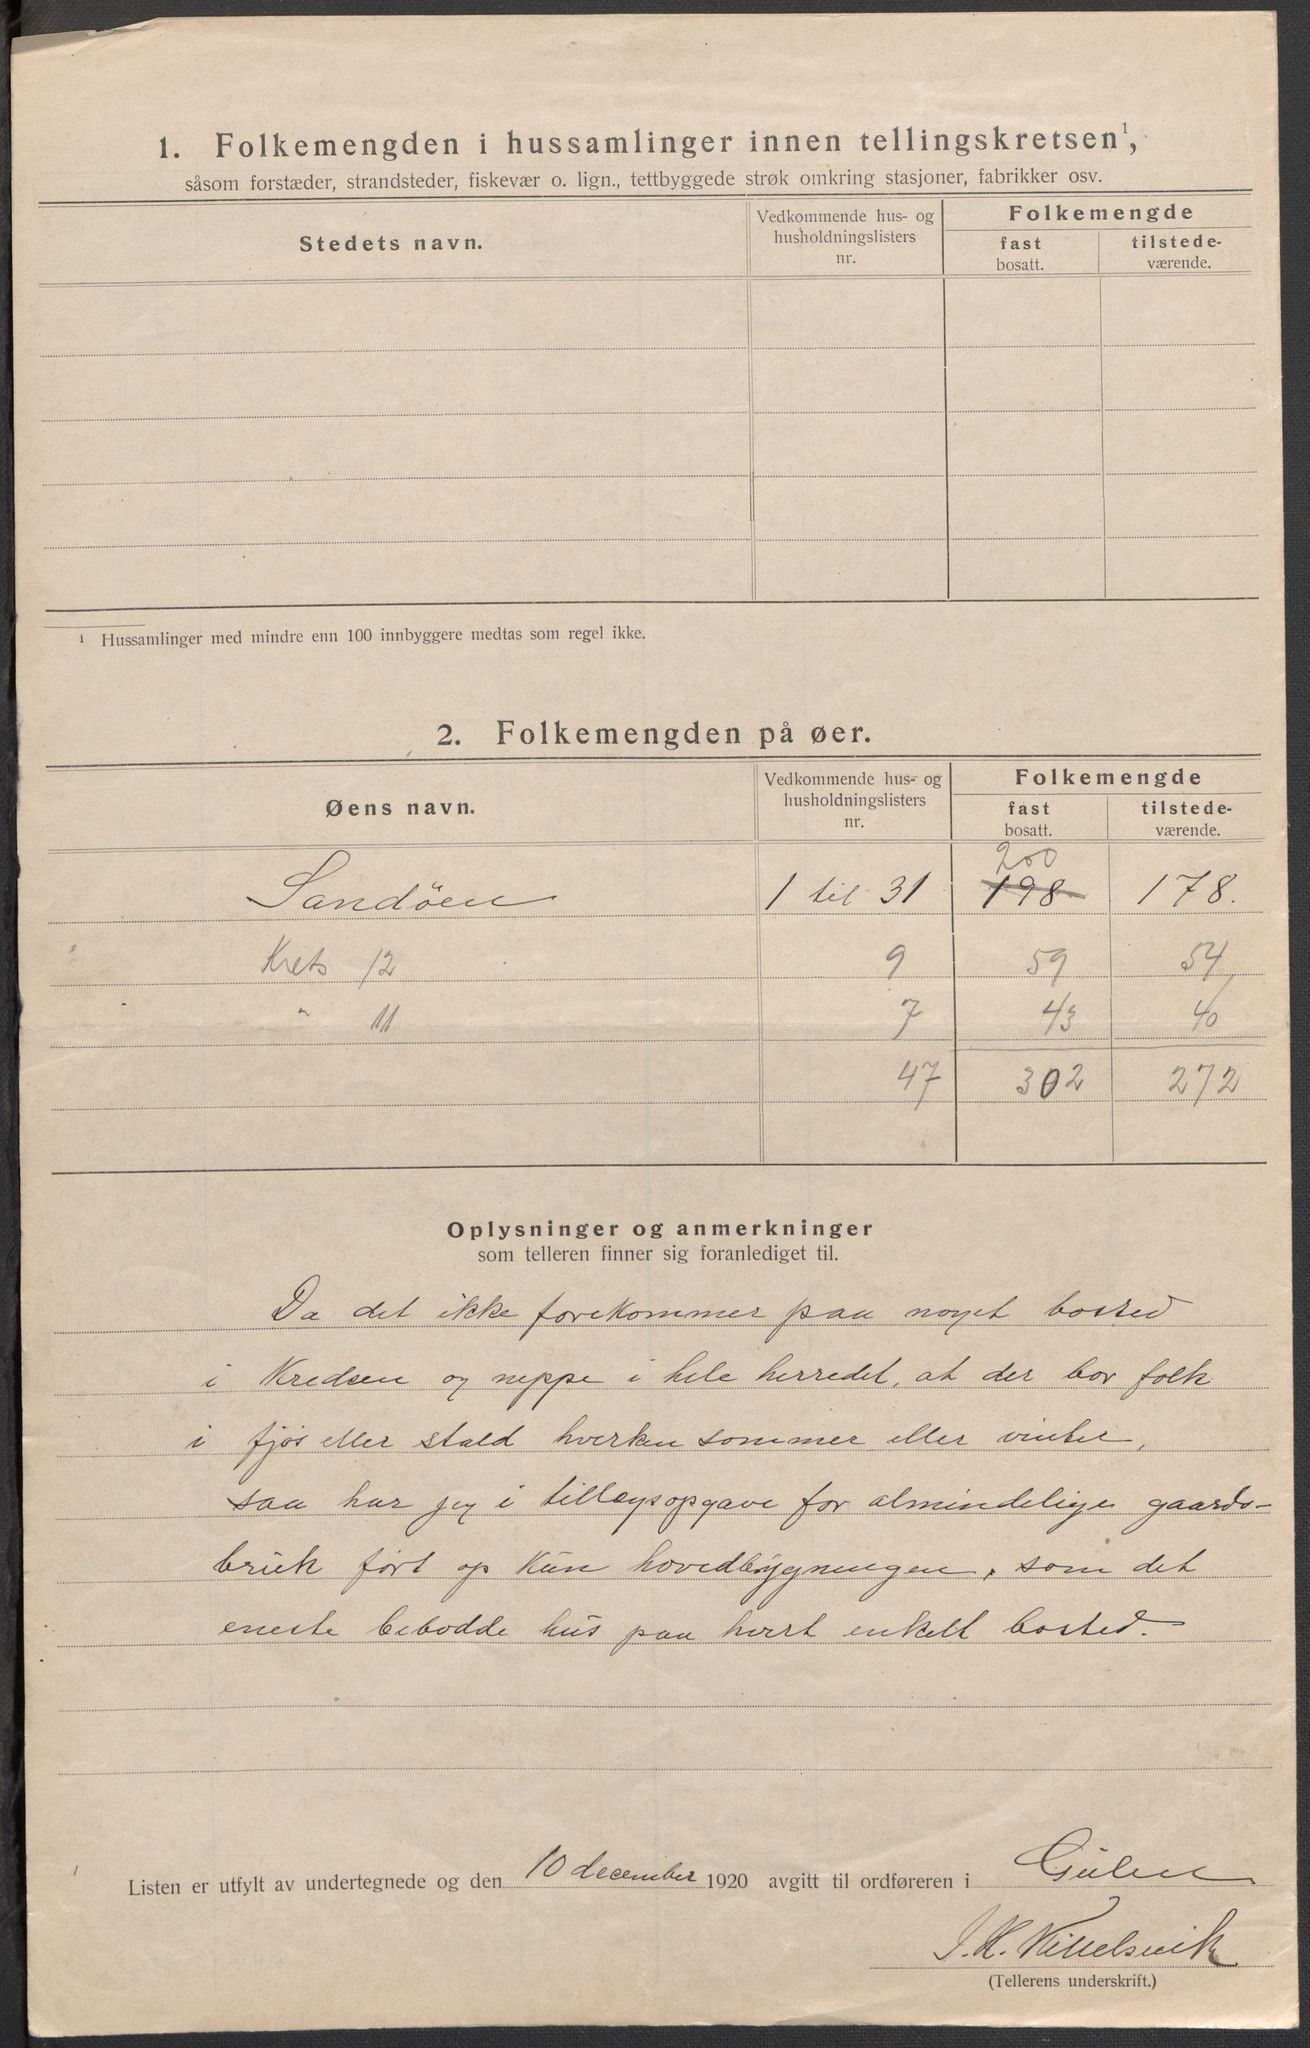 1. Folkemengden i hussamlinger innen tellingskretsen¹,
såsom forstæder, strandsteder, fiskevær o. lign., tettbyggede strøk omkring stasjoner, fabrikker osv.
Stedets navn. Vedkommende hus- og husholdningslisters nr. Folkemengde fast bosatt. tilstede-værende.
¹ Hussamlinger med mindre enn 100 innbyggere medtas som regel ikke.
2. Folkemengden på øer.
Øens navn. Vedkommende hus- og husholdningslisters nr. Folkemengde fast bosatt. tilstede-værende.
200
Sandöen 1 til 31 198 178.
Krets 12 9 59 54
" 11 7 43 40
47 302 272
Oplysninger og anmerkninger
som telleren finner sig foranlediget til.
Da det ikke forekommer paa noget bosted
i Kredsen og neppe i hele herredet, at der bor folk
i fjøs eller stald hverken sommer eller vinter,
saa har jeg i tillægsopgave for almindelige gaards-
bruk ført op kun hovedbygningen, som det
eneste bebodde hus paa hvert enkelt bosted.
Listen er utfylt av undertegnede og den 10 december 1920 avgitt til ordføreren i Gulen
J. H.
(Tellerens underskrift.)